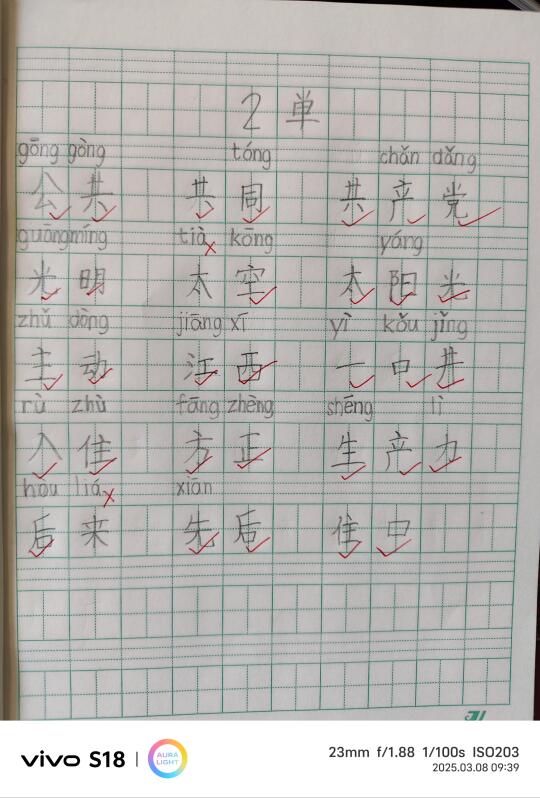 2 单
gōng gòng tóng chǎn dǎng
公共 共同 共产党
guāng míng tià kōng yáng
光明 太空 太阳光
zhǔ dòng jiāng xī yì kǒu jǐng
主动 江西 一口井
rù zhù fāng zhèng shēng lì
入住 方正 生产力
hòu liá xiān
后来 先后 住口
vivo S18 AURA LIGHT 23mm f/1.88 1/100s ISO203
2025.03.08 09:39